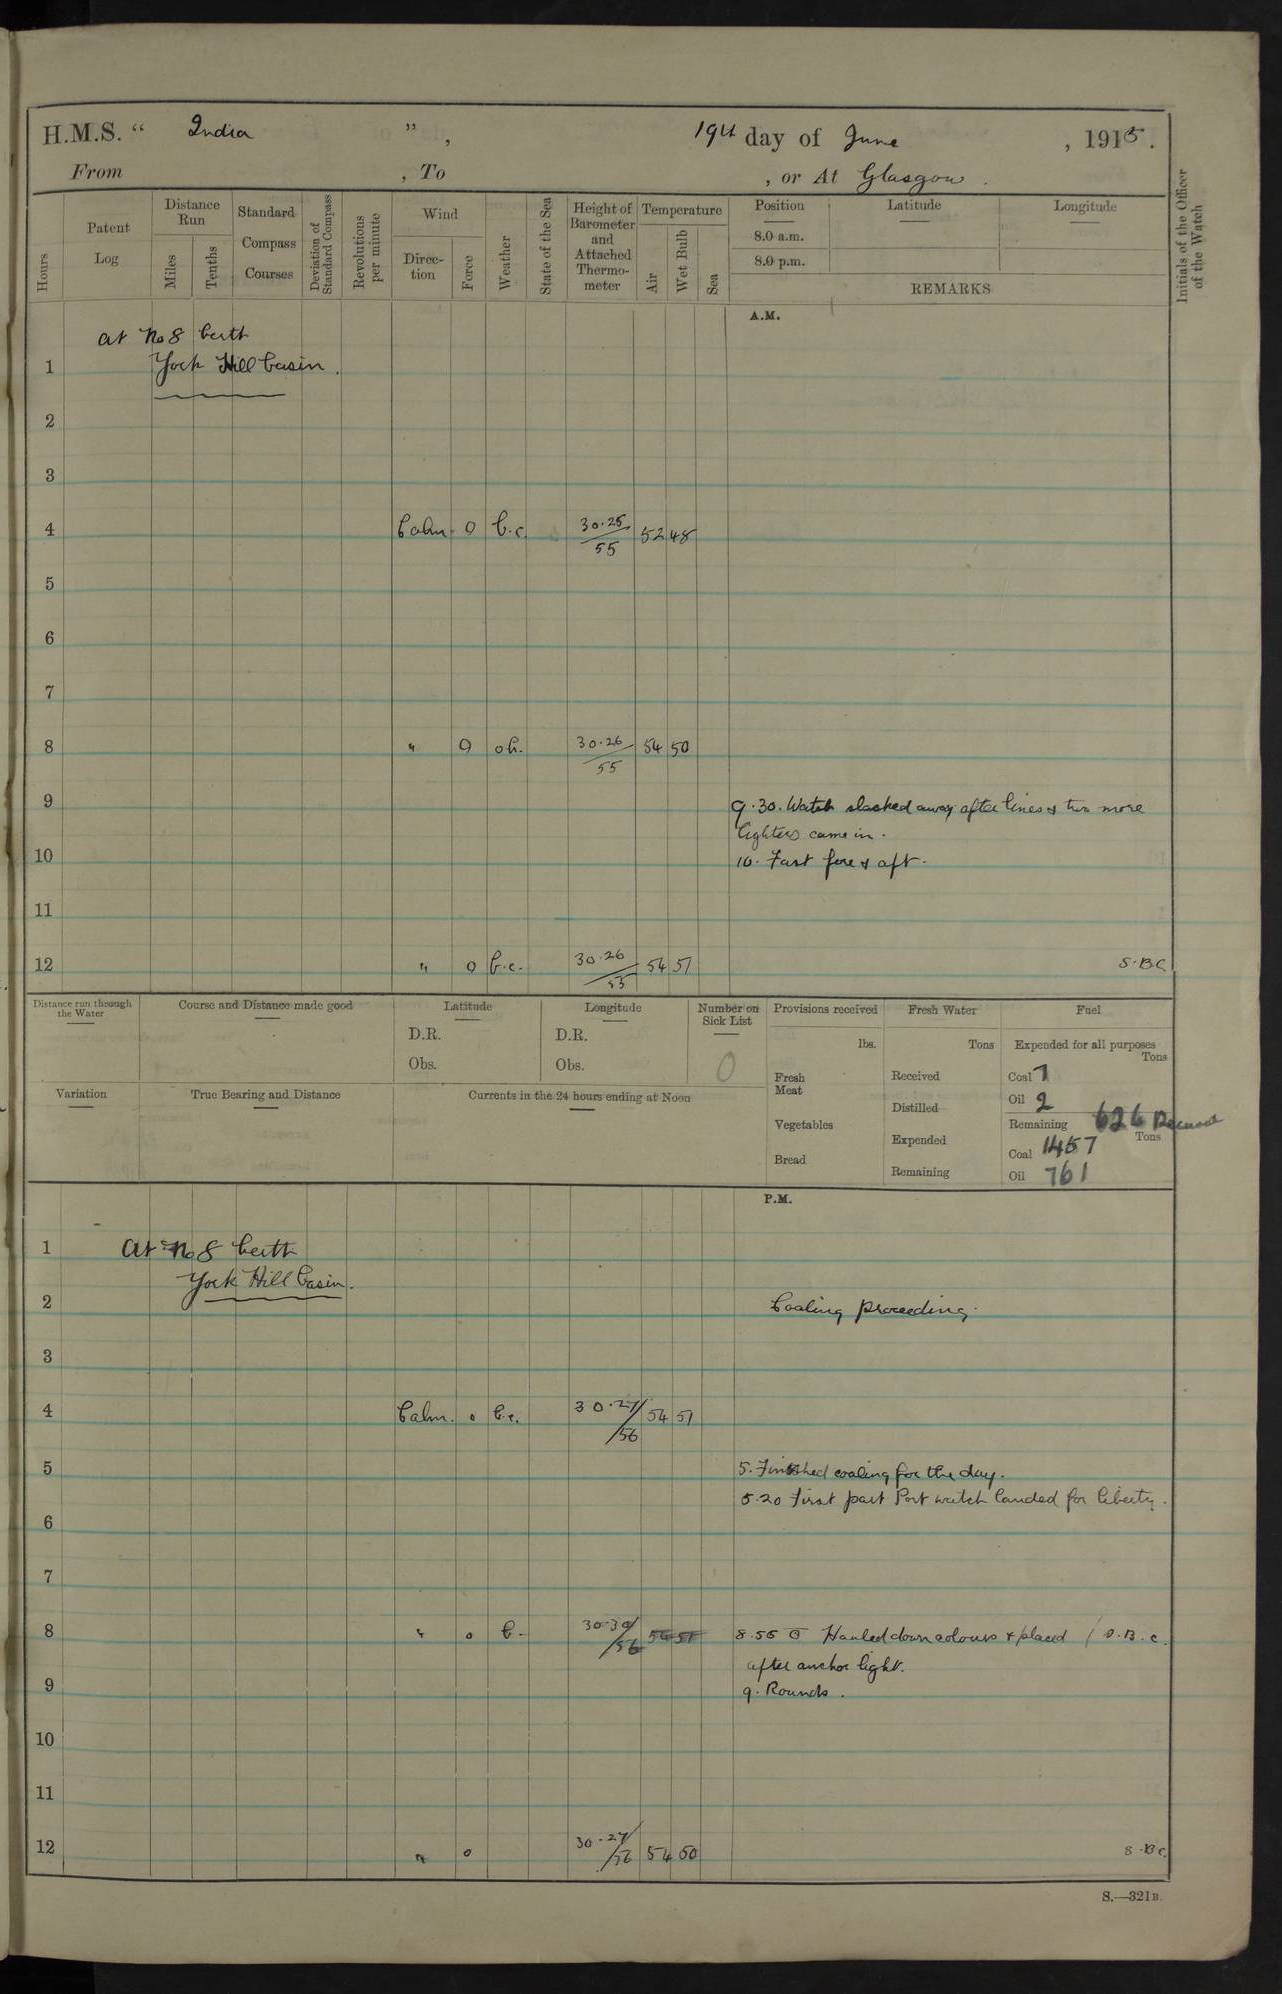 H.M.S. " India " , 19th day of June , 1915 .
From , To , or At Glasgow .
Hours
Patent Log
Distance Run
Miles
Tenths
Standard Compass Courses
Deviation of Standard Compass
Revolutions per minute
Wind
Direc-tion
Force
Weather
State of the Sea
Height of Barometer and Attached Thermo-meter
Temperature
Air
Wet Bulb
Sea
Position
8.0 a.m.
8.0 p.m.
Latitude
Longitude
REMARKS
Initials of the Officer of the Watch
A.M.
at No 8 berth
1 York Hill basin .
2
3
4 Calm 0 b.c. 30.25/55 52 48
5
6
7
8 " 0 oh. 30.26/55 54 50
9 9.30. Watch slacked away after lines & two more
lighters came in .
10 10. Fast fore & aft .
11
12 " 0 b.c. 30.26/55 54 51 S.B.C
Distance run through the Water
Course and Distance made good
Latitude
D.R.
Obs.
Longitude
D.R.
Obs.
Number on Sick List
0
Provisions received
lbs.
Fresh Meat
Vegetables
Bread
Fresh Water
Tons
Received
Distilled
Expended
Remaining
Fuel
Expended for all purposes
Tons
Coal 7
Oil 2
Remaining 626 Received
Tons
Coal 1457
Oil 761
Variation
True Bearing and Distance
Currents in the 24 hours ending at Noon
P.M.
1 At No 8 berth
York Hill basin .
2 Coaling proceeding .
3
4 Calm . 0 b.c. 30.27/56 54 51
5 5. Finished coaling for the day .
5.20 First part Port watch landed for liberty .
6
7
8 " 0 b. 30.30/56 54 51 8.55 Hauled down colours & placed / S.B.C.
after anchor light .
9 9. Rounds .
10
11
12 " 0 30.27/56 54 50 S.B.C.
S.—321B.